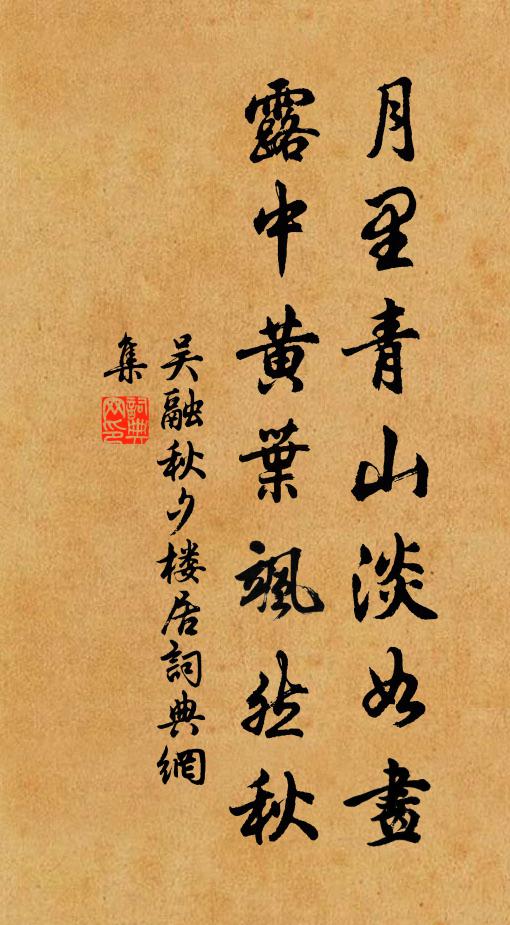 月里青山淡如畫
露中黄葉颯然秋
吴融秋夕楼居詞典網
集
詞典網印